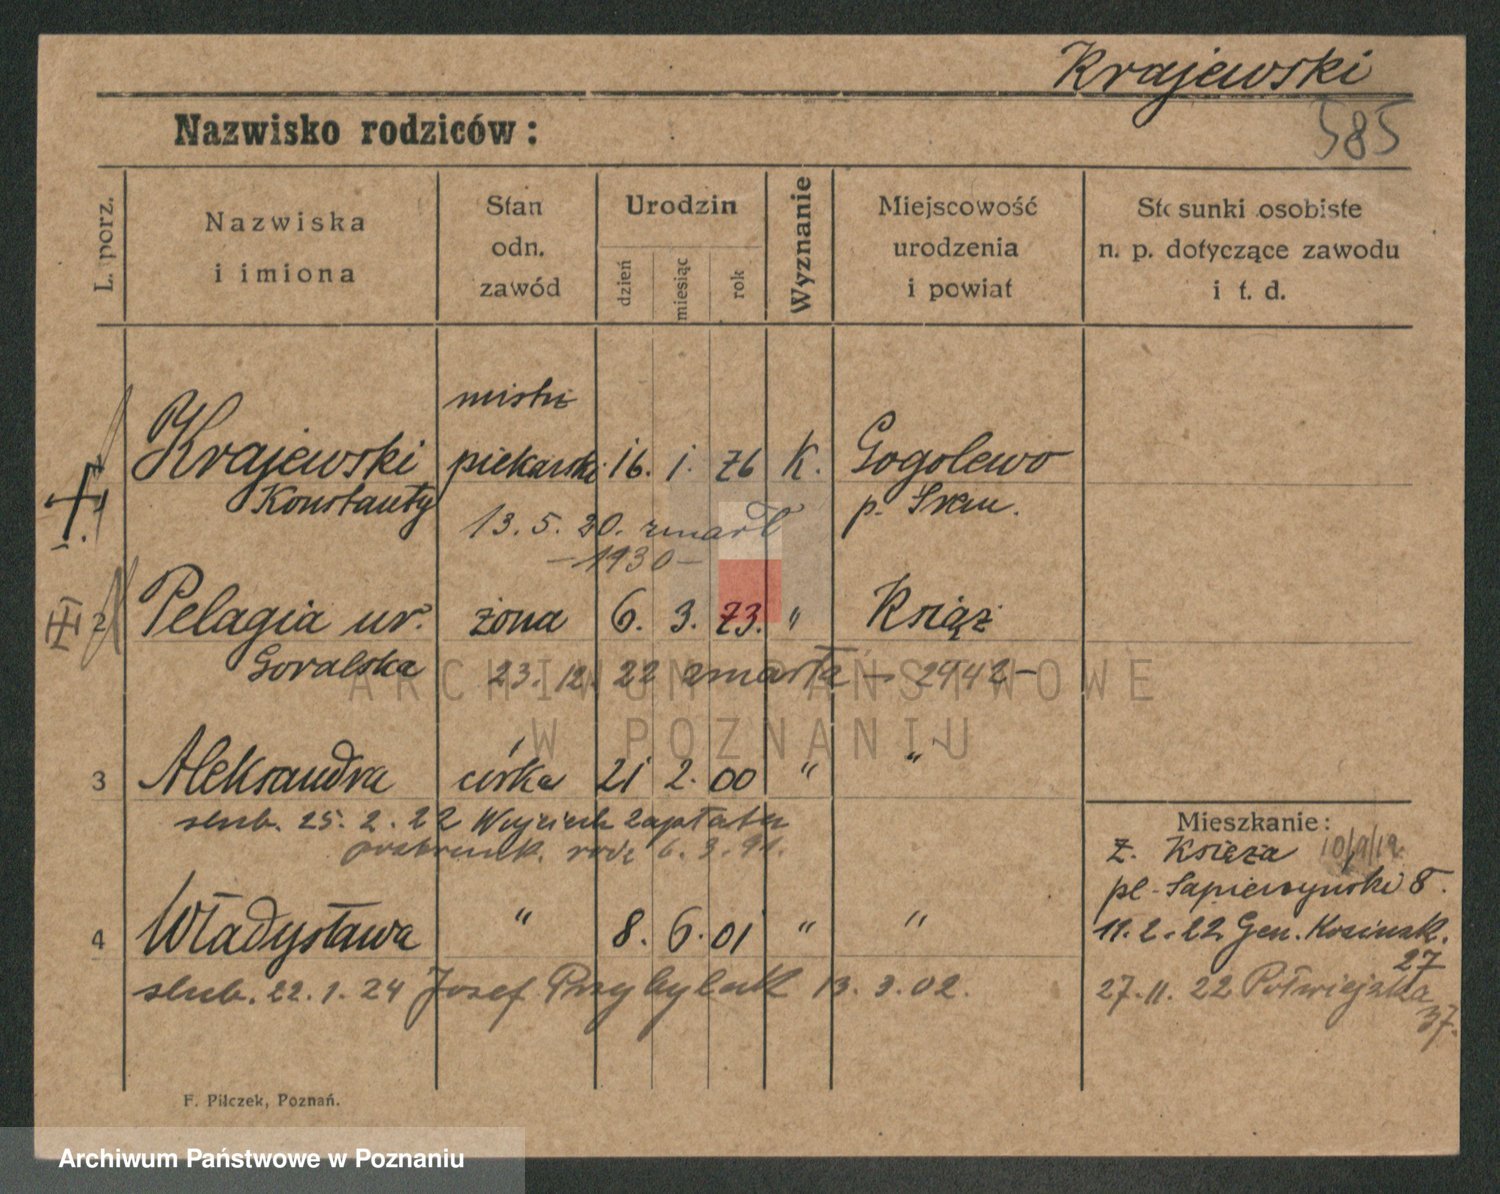 Krajewski
585
Nazwisko rodziców:
L. porz.
Nazwiska
i imiona
Stan
odn.
zawód
Urodzin
dzień
miesiąc
rok
Wyznanie
Miejscowość
urodzenia
i powiat
Stosunki osobiste
n. p. dotyczące zawodu
i t. d.
mistrz
Krajewski piekarski 16. 1. 76 K. Gogolewo
Konstanty p. Śrem.
1.
13. 5. 30. zmarł
—1930—
2 Pelagia ur. żona 6. 3. 73. " Książ
Goralska
23. 12. 22 zmarła
ARCHIWUM PAŃSTWOWE
W POZNANIU
3 Aleksandra córka 21 2. 00 " "
slub. 25. 2. 22 Wojciech Zapłata
6. 3. 91.
4 Władysława " 8. 6. 01 " "
slub. 22. 1. 24 Josef Przybylak 13. 3. 02.
Mieszkanie:
z. Książa
pl. Sapieżyński 8.
11. 2. 22 Gen. Kosinsk.
27
27. 11. 22 Półwiejska
37.
F. Pilczek, Poznań.
Archiwum Państwowe w Poznaniu